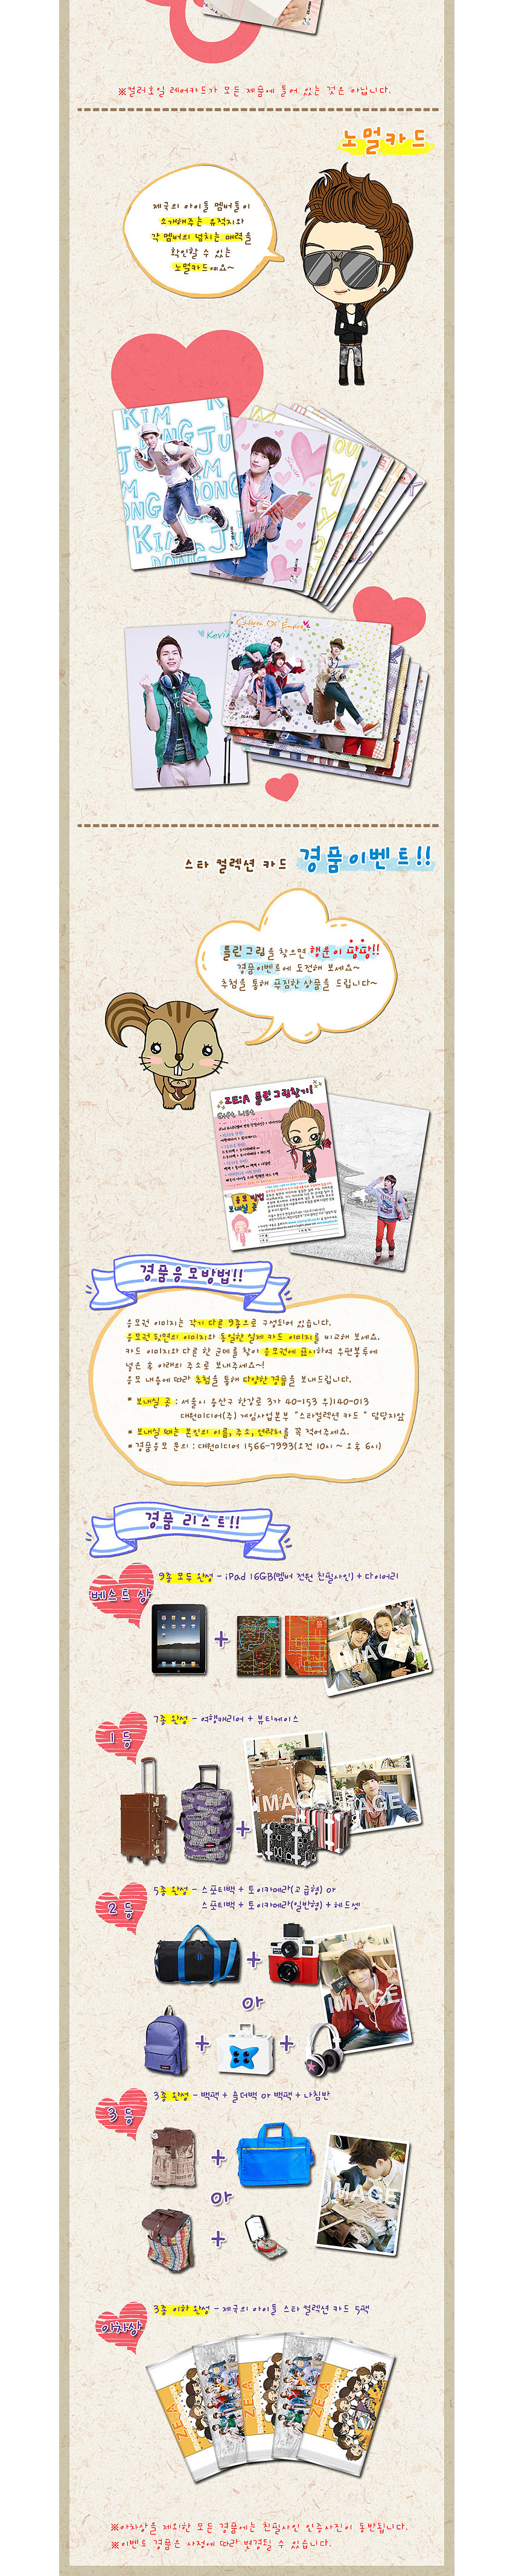 ※컬러호일 레어카드가 모든 제품에 들어 있는 것은 아닙니다.
노멀카드
제국의 아이돌 멤버들이
소개해주는 유적지와
각 멤버의 넘치는 매력을
확인할 수 있는
노멀카드예요~
KIM
DONG JUN
Siwan
Kevin
Children Of Empire
스타 컬렉션 카드 경품이벤트!!
틀린그림을 찾으면 행운이 팡팡!!
경품이벤트에 도전해 보세요~
추첨을 통해 푸짐한 상품을 드립니다~
ZE:A 틀린그림찾기!
Gift List
응모방법
보내실 곳
경품응모방법!!
응모권 이미지는 각기 다른 9종으로 구성되어 있습니다.
응모권 뒷면의 이미지와 동일한 실제 카드 이미지를 비교해 보세요.
카드 이미지와 다른 한 군데를 찾아 응모권에 표시하여 우편봉투에
넣은 후 아래의 주소로 보내주세요~!
응모 내용에 따라 추첨을 통해 다양한 경품을 보내드립니다.
* 보내실 곳 : 서울시 용산구 한강로 3가 40-153 우)140-013
대원미디어(주) 게임사업본부 "스타컬렉션 카드 " 담당자앞
* 보내실 때는 본인의 이름, 주소, 연락처를 꼭 적어주세요.
* 경품응모 문의 : 대원미디어 1566-7993(오전 10시 ~ 오후 6시)
경품 리스트!!
베스트 상
9종 모두 완성 - iPad 16GB(멤버 전원 친필사인) + 다이어리
IMAGE
1 등
7종 완성 - 여행캐리어 + 뷰티케이스
IMAGE
IMAGE
2 등
5종 완성 - 스포티백 + 토이카메라(고급형) or
스포티백 + 토이카메라(일반형) + 헤드셋
+
or
IMAGE
+ +
3 등
3종 완성 - 백팩 + 숄더백 or 백팩 + 나침반
+
or
IMAGE
+
아차상
3종 이하 완성 - 제국의 아이돌 스타 컬렉션 카드 5팩
ZE:A
ZE:A
ZE:A
※아차상을 제외한 모든 경품에는 친필사인 인증사진이 동반됩니다.
※이벤트 경품은 사정에 따라 변경될 수 있습니다.